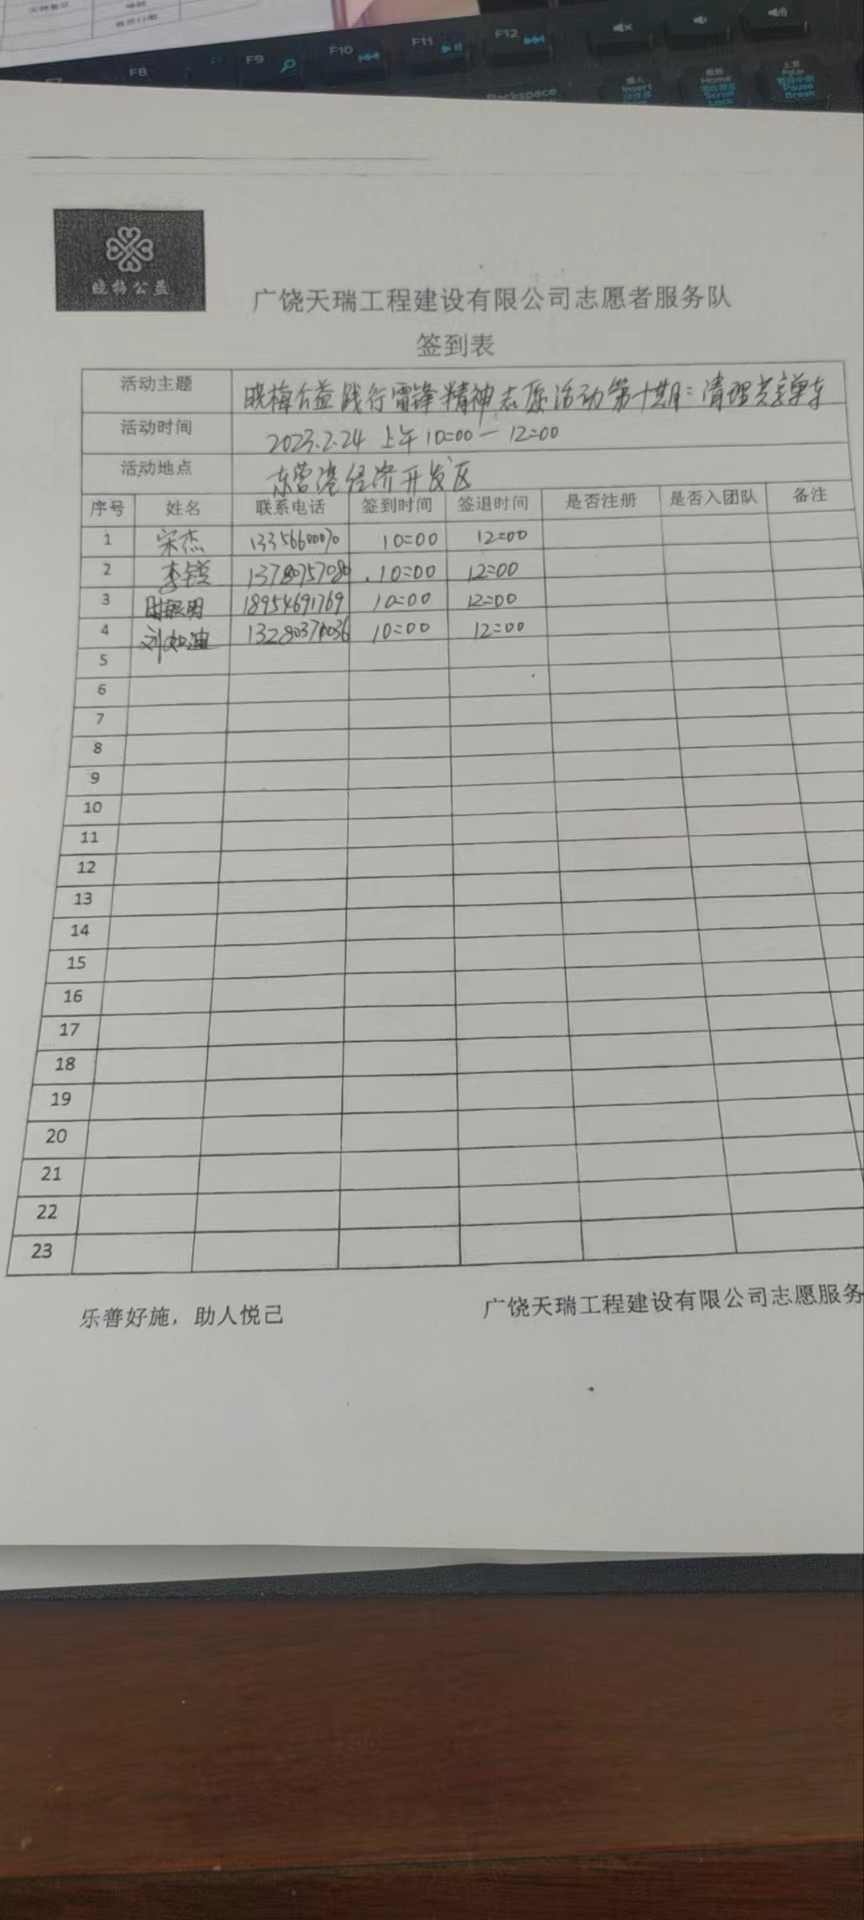 F8 F9 F10 F11 F12
Backspace
插入 Insert
Home Scroll Lock
上页 PgUp Pause Break
晓梅公益
广饶天瑞工程建设有限公司志愿者服务队
签到表
活动主题 晓梅公益践行雷锋精神志愿活动第十期：清理共享单车
活动时间 2023.2.24 上午 10:00－12:00
活动地点 东营港经济开发区
序号 姓名 联系电话 签到时间 签退时间 是否注册 是否入团队 备注
1 宋杰 13356600070 10:00 12:00
2 李锐 13780757080 10:00 12:00
3 18954691769 10:00 12:00
4 刘如迪 13280371036 10:00 12:00
5
6
7
8
9
10
11
12
13
14
15
16
17
18
19
20
21
22
23
乐善好施，助人悦己 广饶天瑞工程建设有限公司志愿服务